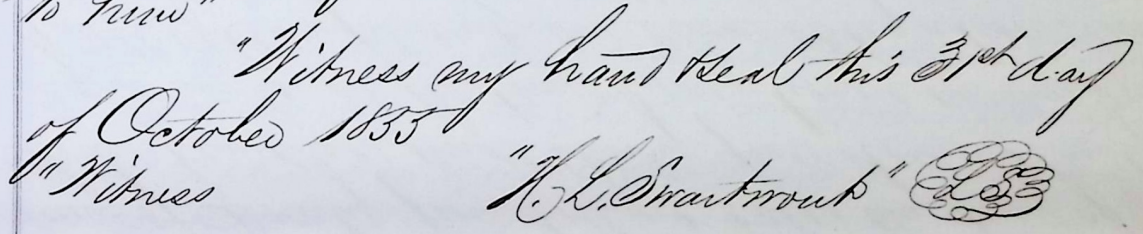 to him"
"Witness my hand & seal this 31st day
of October 1855
"Witness "H. L. Swartwout" L S